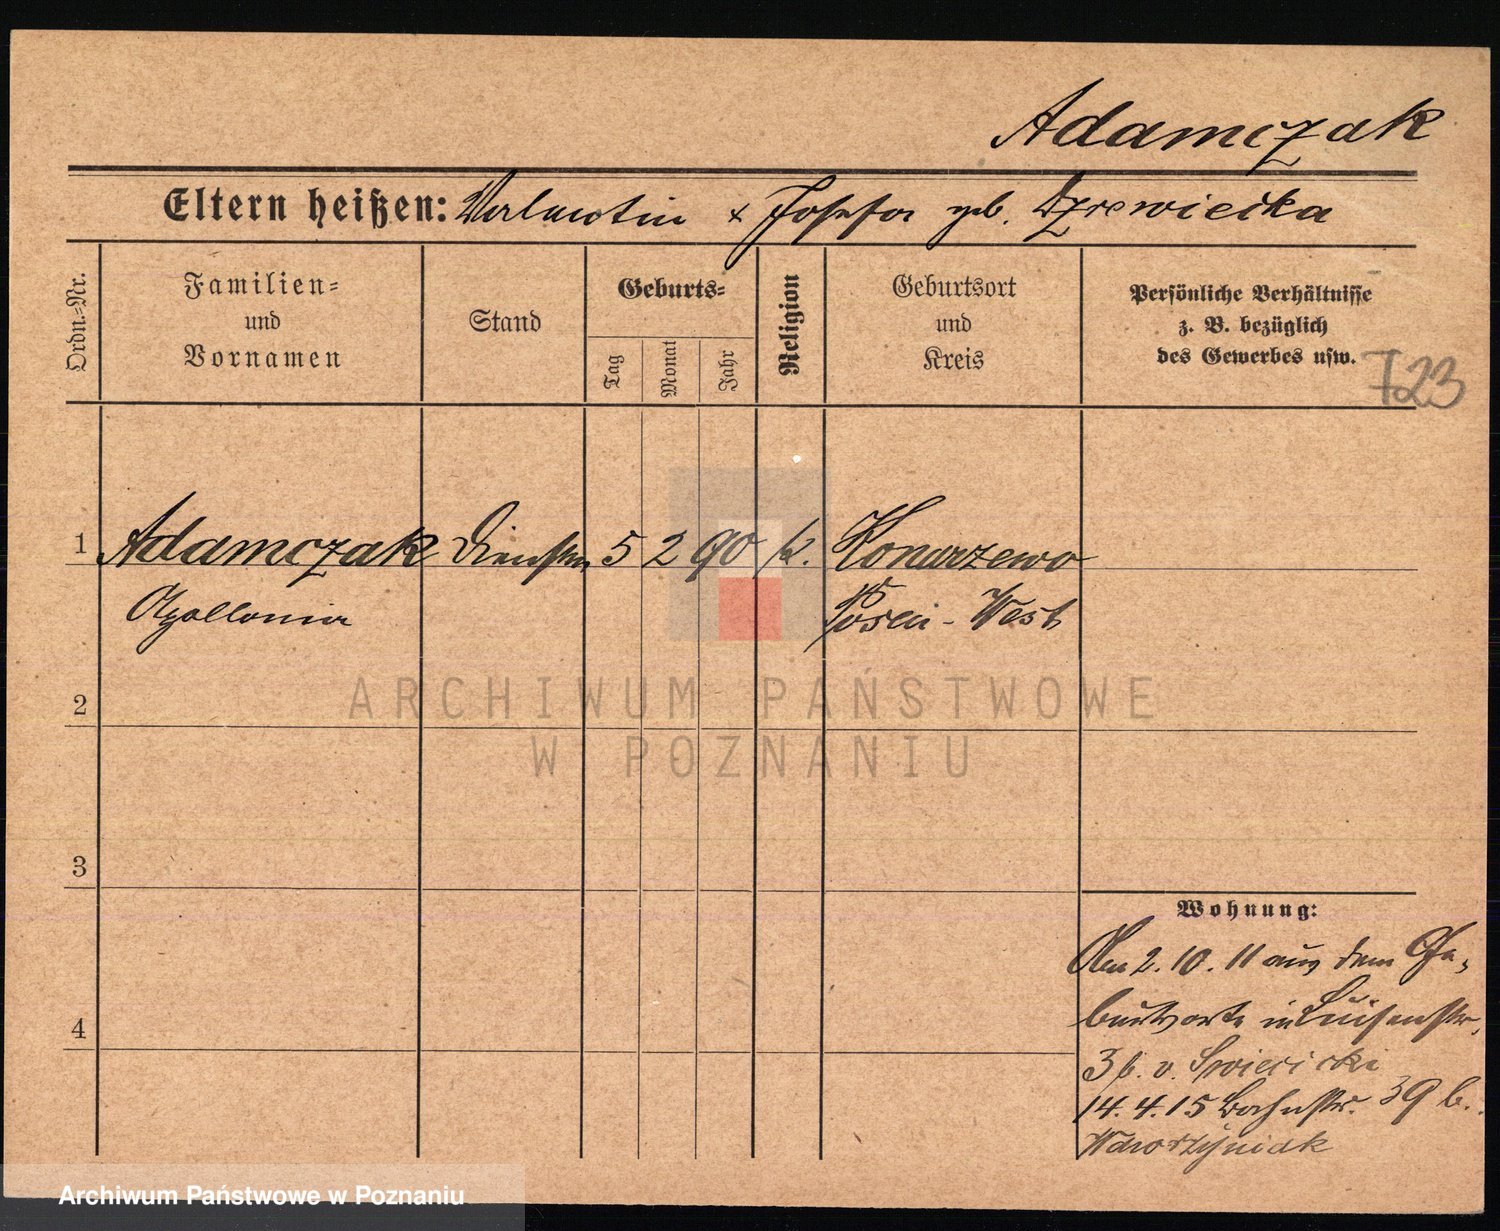 Adamczak
Eltern heißen: Valentin + Josefa geb. Dzrewiecka
Ordn.-Nr.
Familien-
und
Vornamen
Stand
Geburts-
Tag
Monat
Jahr
Religion
Geburtsort
und
Kreis
Persönliche Verhältnisse
z. B. bezüglich
des Gewerbes usw.
723
1 Adamczak Dienstm 5 2 90 k. Konarzewo
Apollonia Posen-West
2
3
4
ARCHIWUM PAŃSTWOWE
W POZNANIU
Wohnung:
2.10.11 aus dem Ge-
burtsorte in Luisenstr.
3 b. v. Swiecicki
14.4.15 Bahnstr. 39 b.
Wawrzyniak
Archiwum Państwowe w Poznaniu